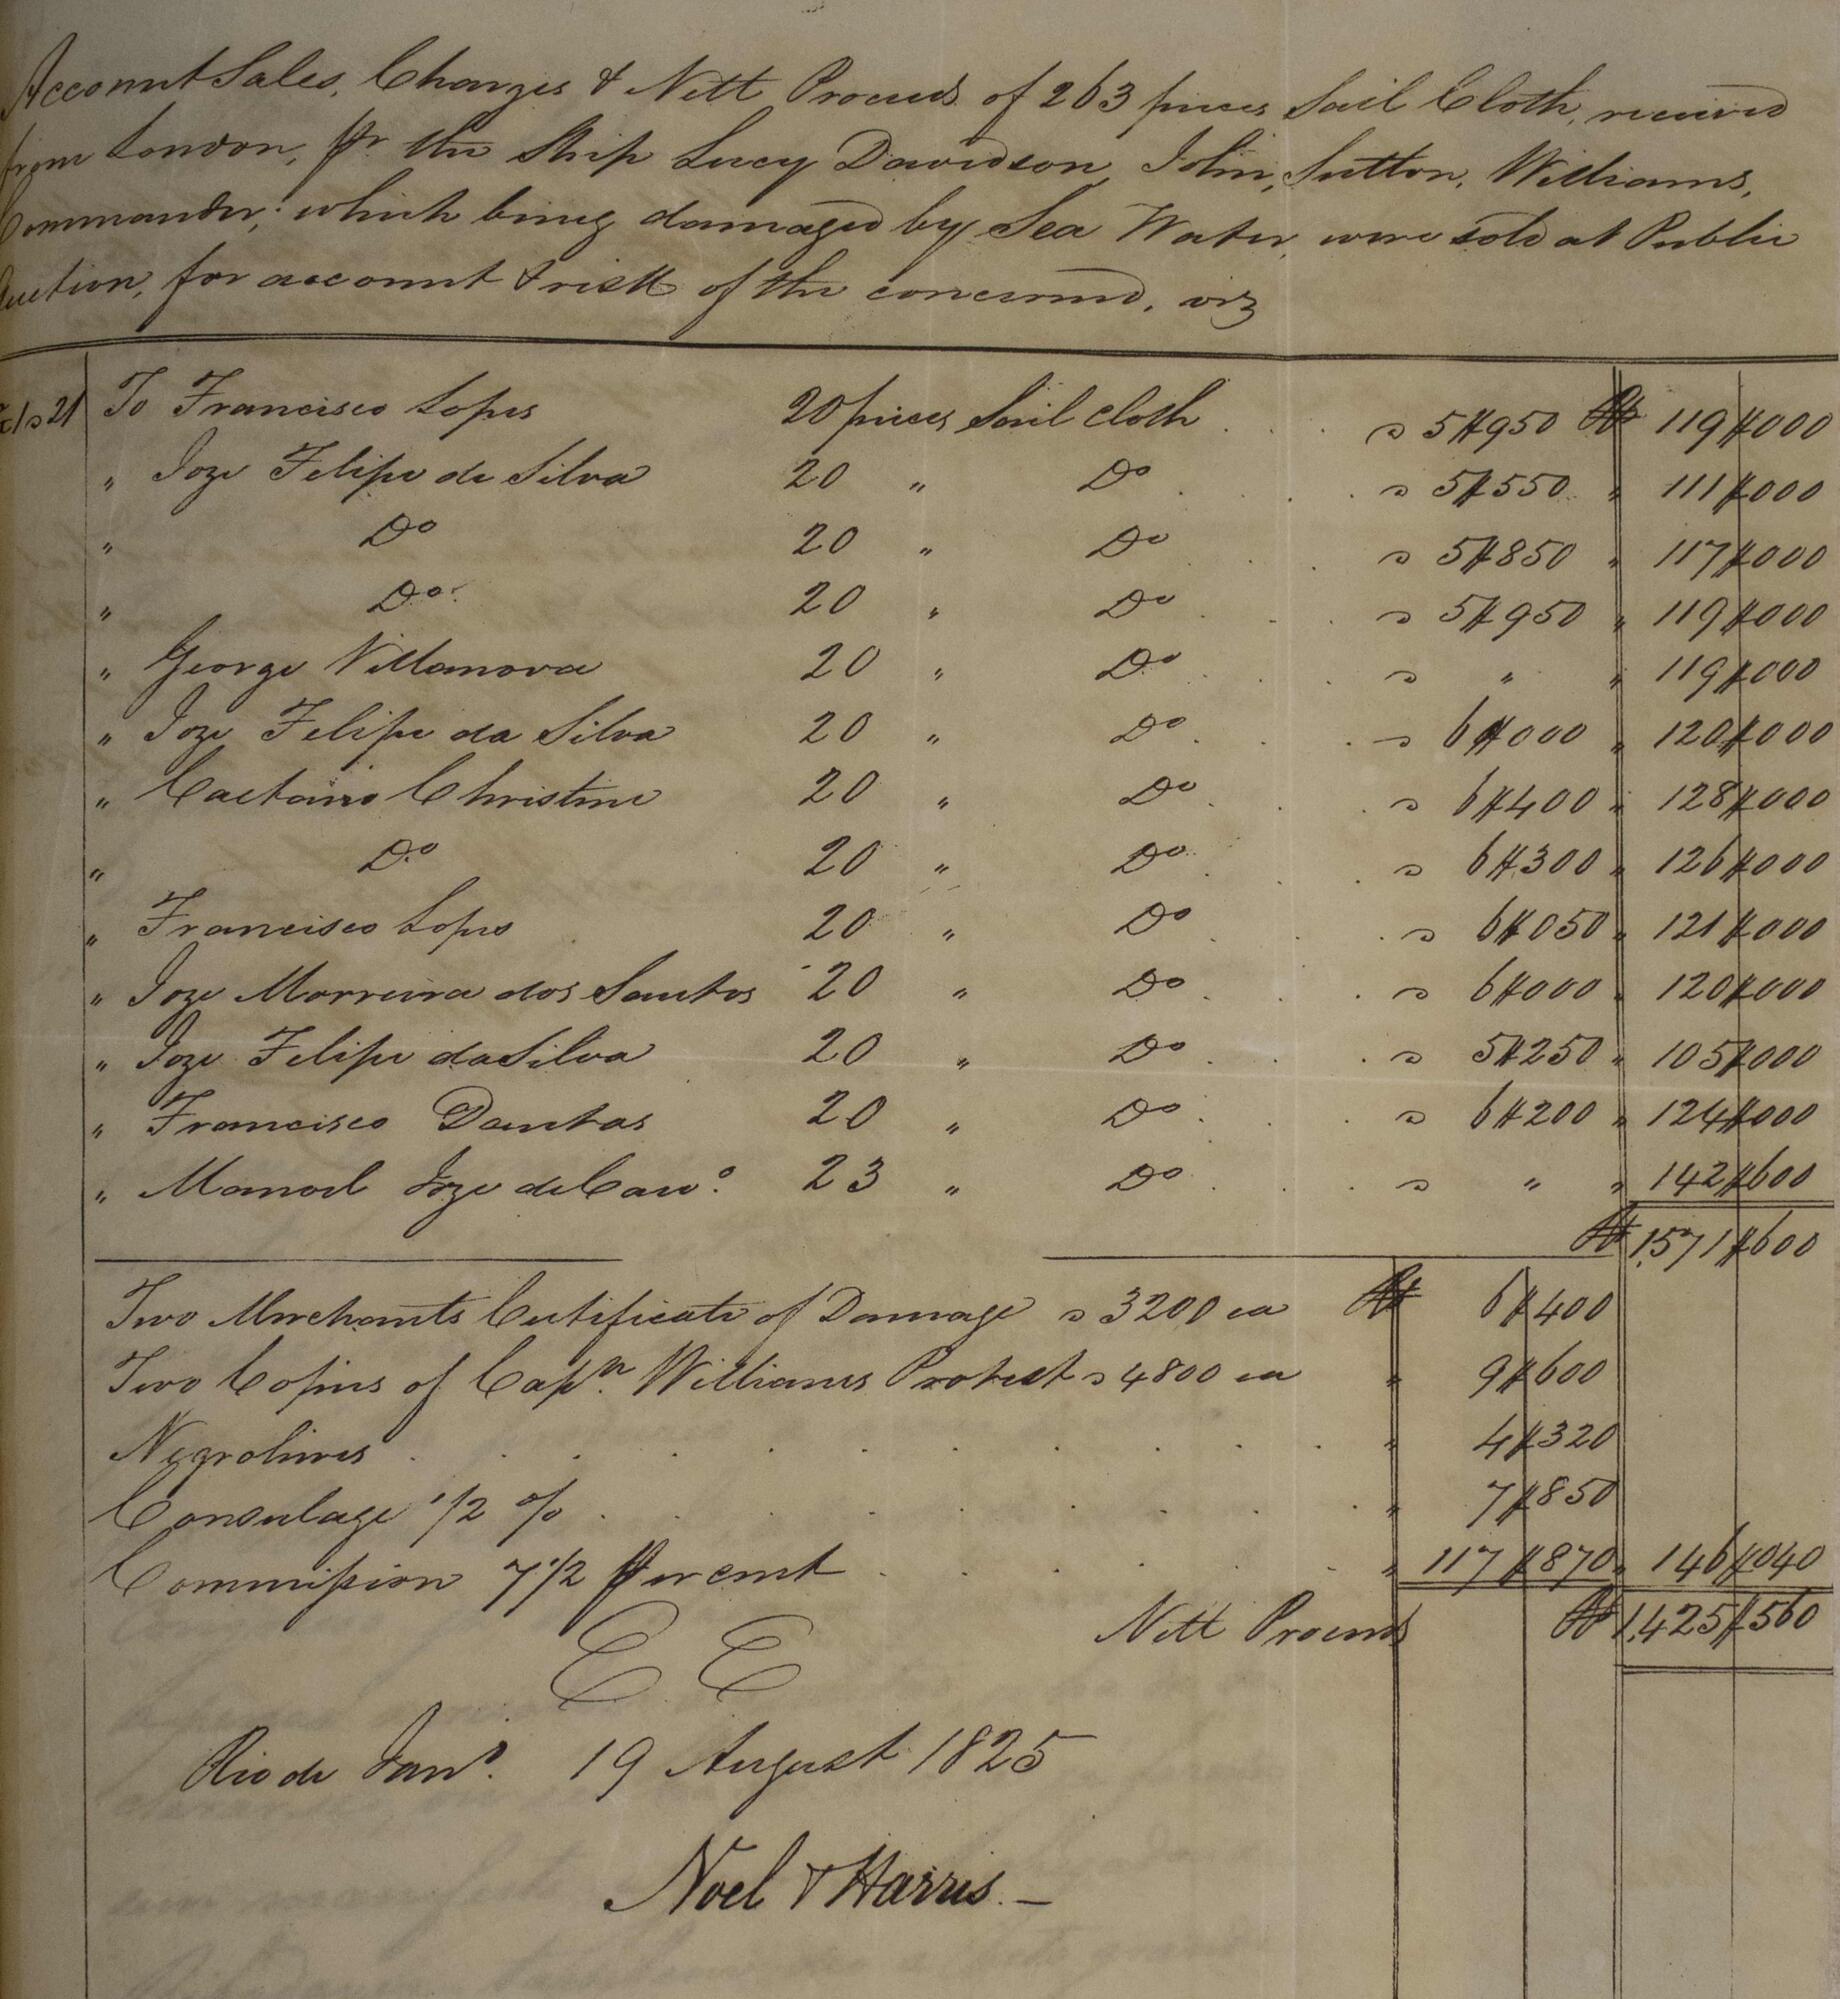 Account Sales, Charges & Nett Proceeds of 263 pieces Sail Cloth, received
from London, pr. the Ship Lucy Davidson, John, Sutton, Williams,
Commander; which being damaged by Sea Water, were sold at Public
Auction, for account & risk of the concerned, viz
21 To Francisco Lopes 20 pieces Sail Cloth . . . a 5$950 Rs 119$000
" Joze Felipe de Silva 20 " Do . . . a 5$550 " 111$000
" Do 20 " Do . . a 5$850 " 117$000
" Do 20 " Do . . . a 5$950 " 119$000
" George Villanova 20 " Do . . . a " " 119$000
" Joze Felipe da Silva 20 " Do . . . a 6$000 " 120$000
" Caetano Christine 20 " Do . . . a 6$400 " 128$000
" Do 20 " Do . . . a 6$300 " 126$000
" Francisco Lopes 20 " Do . . . a 6$050 " 121$000
" Joze Morreira dos Santos 20 " Do . . . a 6$000 " 120$000
" Joze Felipe da Silva 20 " Do . . . a 5$250 " 105$000
" Francisco Dantas 20 " Do . . . a 6$200 " 124$000
" Manoel Joze de Carvo. 23 " Do . . . a " " 142$600
Rs 1,571$600
Two Merchants Certificate of Damage a 3200 ea Rs 6$400
Two Copies of Capn. Williams Protest a 4800 ea " 9$600
Negrohires . . . . . . . . . . " 4$320
Consulage 1/2 % . . . . . . . . " 7$850
Commission 7 1/2 per cent . . . . . " 117$870 " 146$040
Nett Proceeds Rs 1,425$560
E E
Rio de Jano. 19 August 1825
Noel & Harris. —